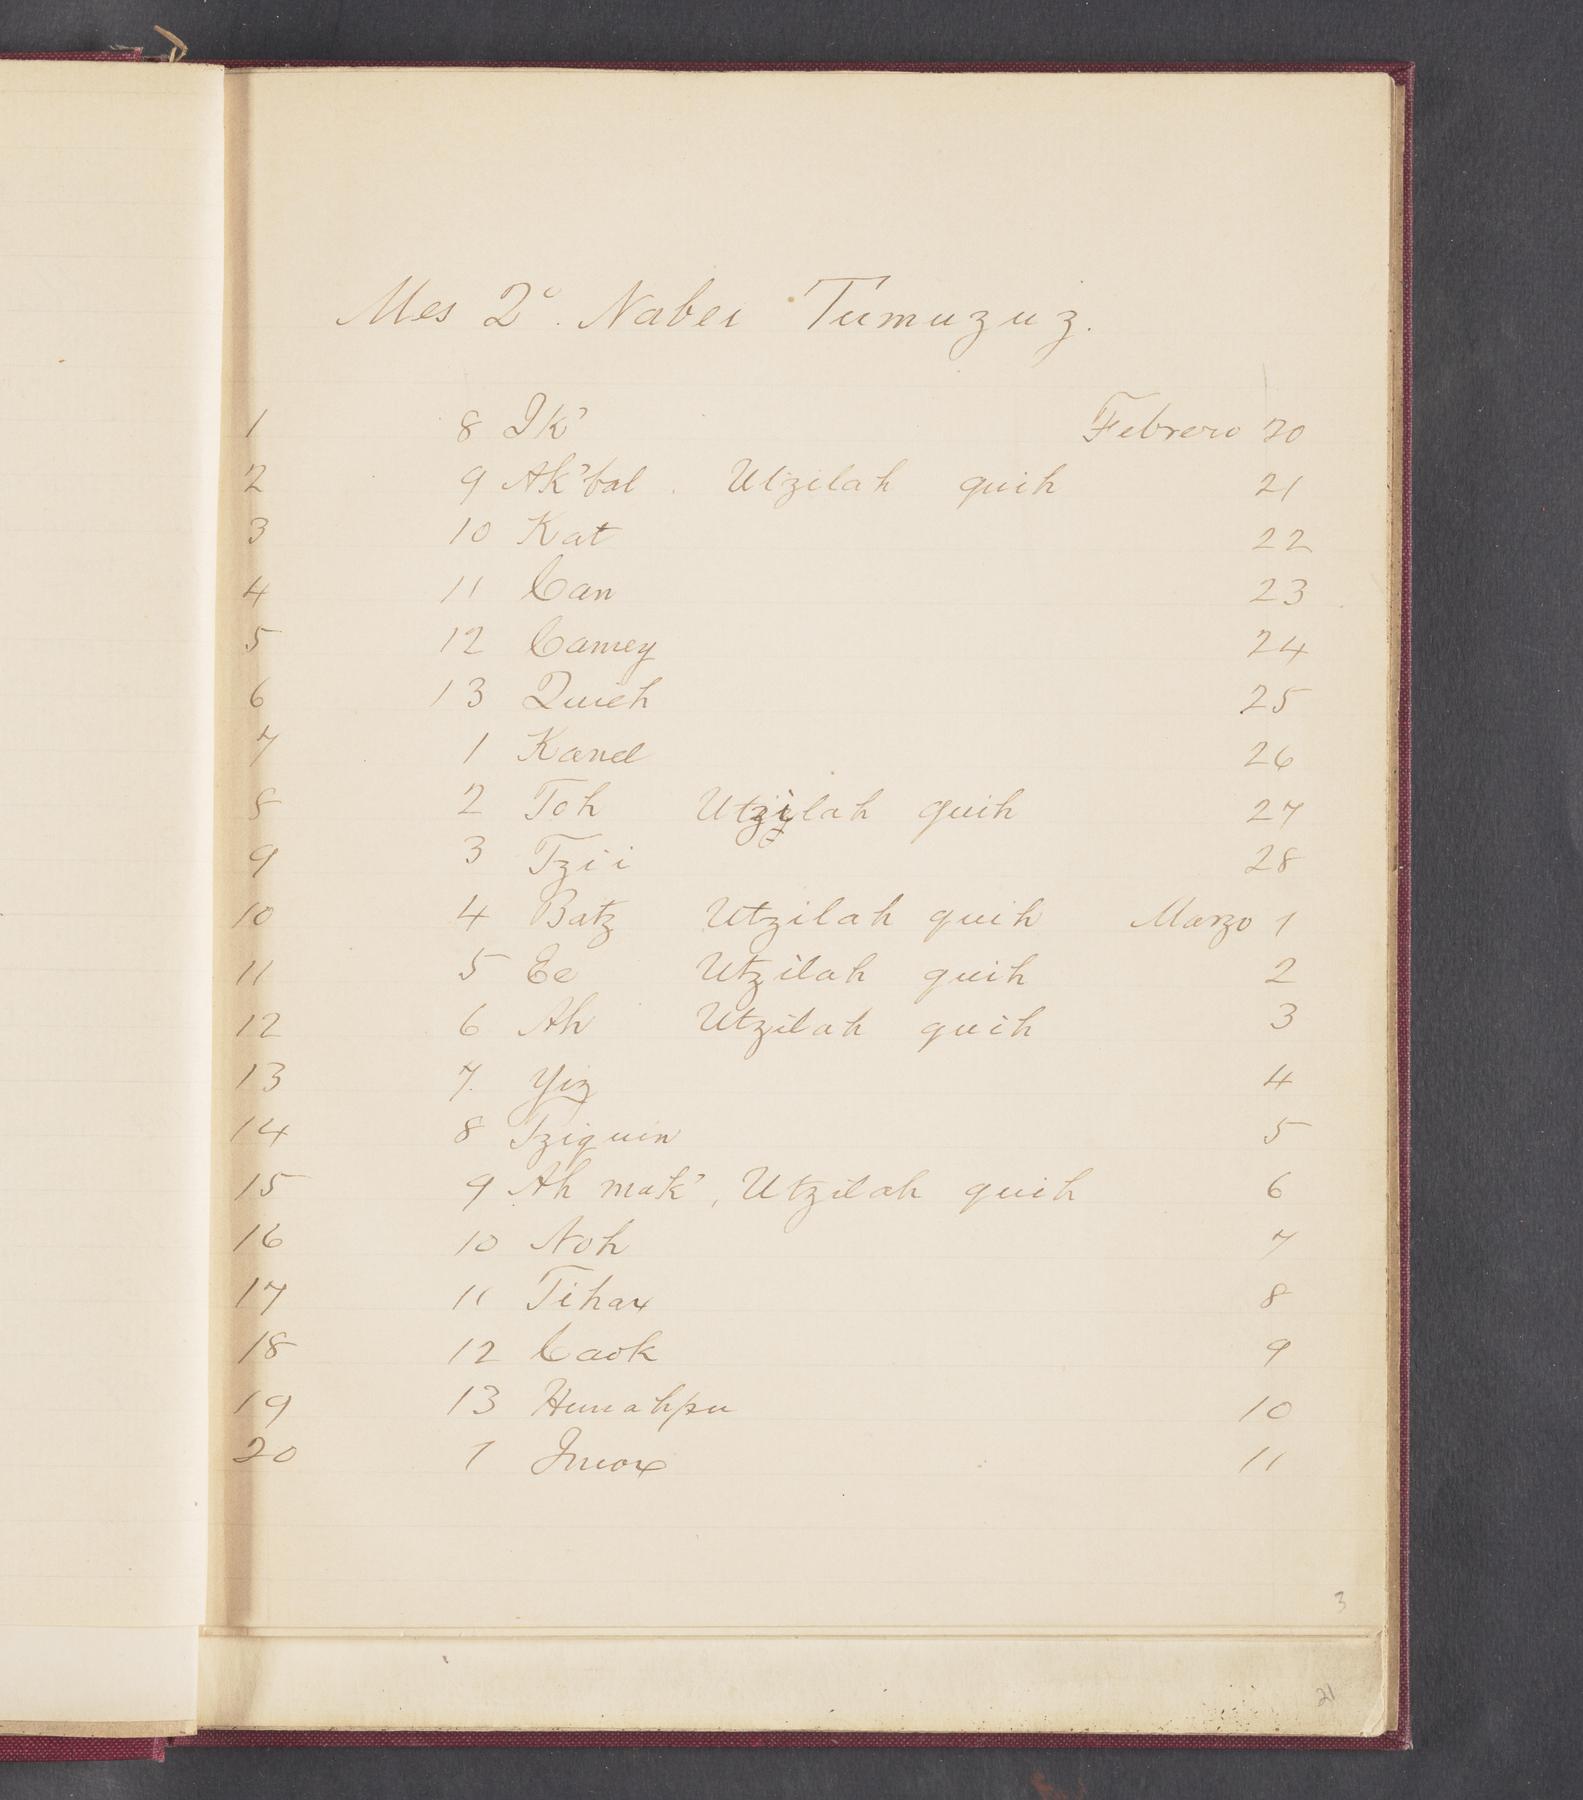 Mes 2º. Nabei Tumuzuz.
1 8 Ik' Febrero 20
2 9 Ak'bal. Utzilah quih 21
3 10 Kat 22
4 11 Can 23
5 12 Camey 24
6 13 Quieh 25
7 1 Kanel 26
8 2 Toh Utzilah quih 27
9 3 Tzii 28
10 4 Batz Utzilah quih Marzo 1
11 5 Ee Utzilah quih 2
12 6 Ah Utzilah quih 3
13 7. Yiz 4
14 8 Tziquin 5
15 9 Ah mak', Utzilah quih 6
16 10 Noh 7
17 11 Tihax 8
18 12 Caok 9
19 13 Hunahpu 10
20 1 Imox 11
3
21